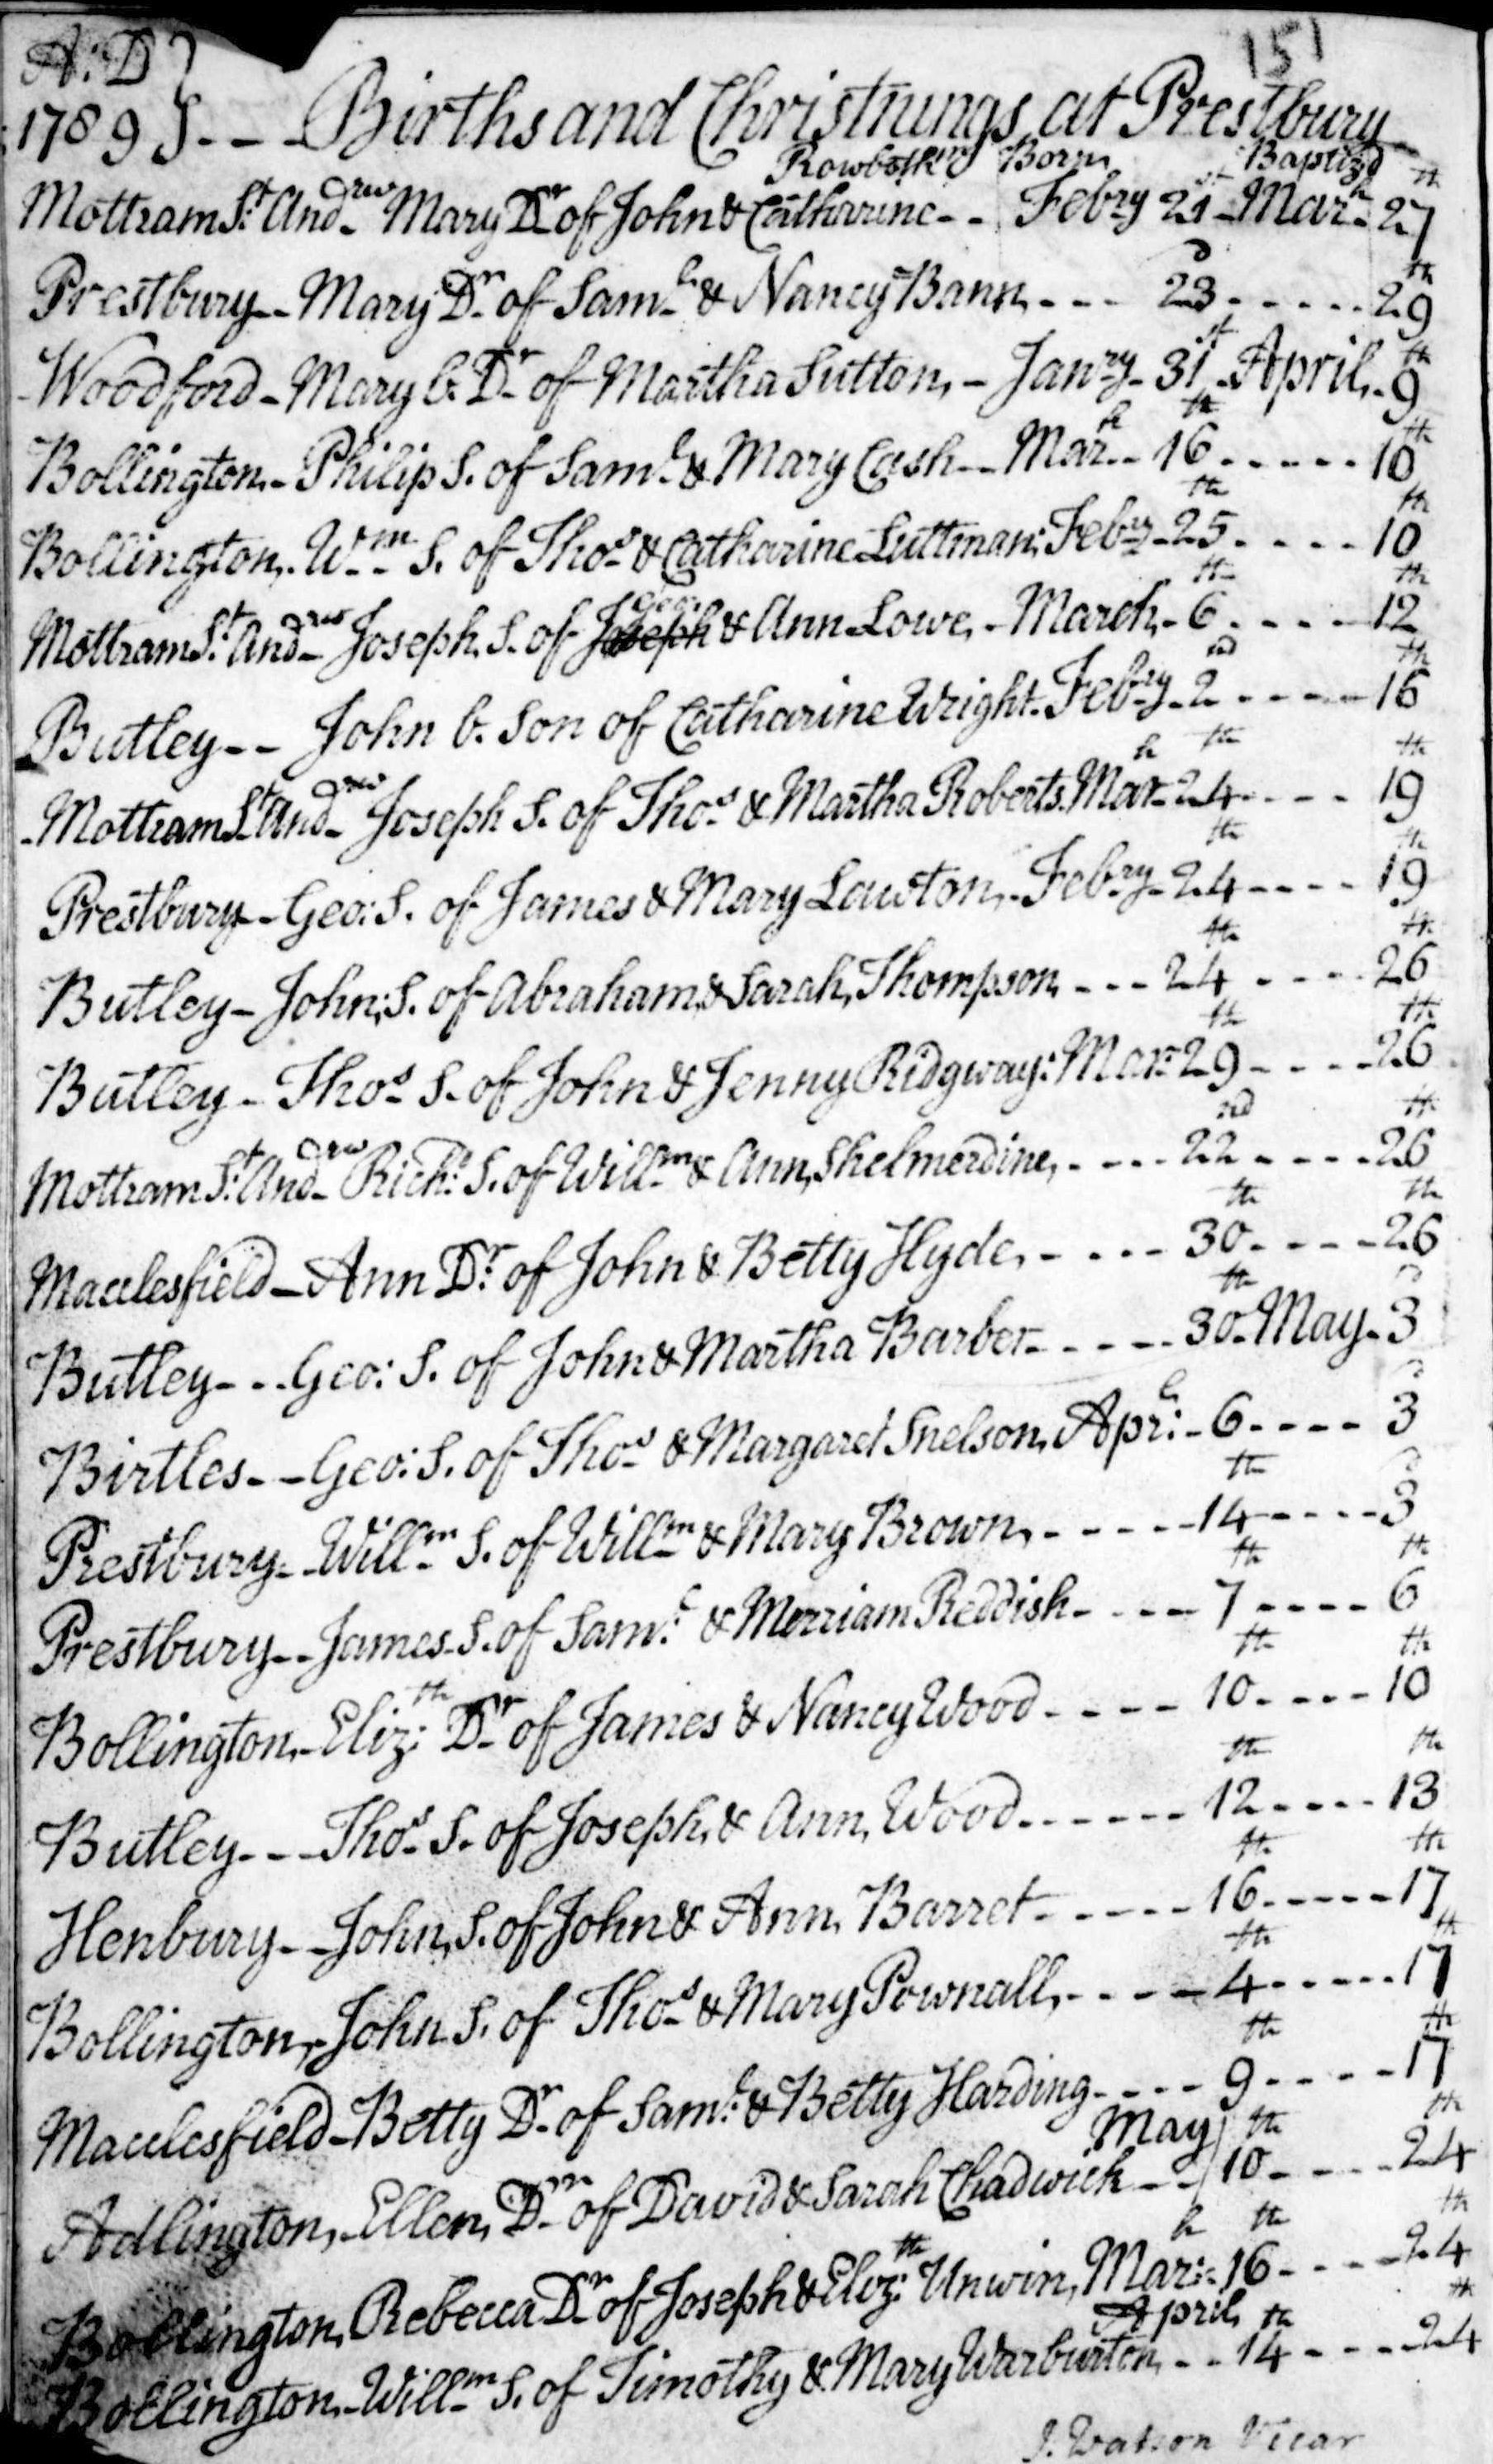 151
A:D }
1789 } - - Births and Christnings at Prestbury
Rowbotham Born Baptizd
Mottram St. Andrew Mary Dr of John & Catharine - - Febry 21st - Marh 27th
Prestbury - - Mary Dr of Saml & Nancy Bann - - - 23d - - - - - 29th
Woodford - Mary b. Dr of Martha Sutton, - Janry - 31st - April - 9th
Bollington - Philip S. of Saml & Mary Cash - - Marh - 16th - - - - - 10th
Bollington, Wm S. of Thos & Catharine Luttman: Febry - 25th - - - - 10th
Mottram St. Andrew Joseph S. of Joseph Geo: & Ann Lowe, - March - 6th - - - - 12th
Butley - - John b. Son of Catharine Wright. Febry - 2nd - - - - - 16th
Mottram St Andrew Joseph S. of Thos & Martha Roberts. Marh 24th - - - - 19th
Prestbury - Geo: S. of James & Mary Lawton, - Febry - 24th - - - - 19th
Butley - John; S. of Abraham & Sarah, Thompson - - - 24th - - - - 26th
Butley - Thos S. of John & Jenny Ridgway: Mar: 29th - - - - 26th
Mottram St. Andrew Richd: S. of Willm & Ann, Shelmerdine, - - - - 22nd - - - - 26th
Macclesfield - Ann Dr. of John & Betty Hyde, - - - - 30th - - - - 26th
Butley - - - Geo: S. of John & Martha Barber - - - - - 30th - May - 3d
Birtles - - Geo: S. of Thos & Margaret Snelson, Aprl: - 6 - - - - 3d
Prestbury - - Willm S. of Willm & Mary Brown, - - - - - 14th - - - - 3d
Prestbury - - James - S. of Saml: & Merriam Reddish - - - - 7th - - - - 6th
Bollington, - Elizth: Dr of James & Nancy Wood - - - - 10th - - - - 10th
Butley - - - Thos S. of Joseph, & Ann, Wood - - - - - - 12th - - - - 13th
Henbury - - John, S. of John & Ann, Barret - - - - - 16th - - - - - 17th
Bollington, - John S. of Thos & Mary Pownall, - - - - 4th - - - - - 17th
Macclesfield - Betty Dr of Saml: & Betty Harding - - - - 9th - - - - - 17th
Adlington, - Ellen, Dr of David & Sarah Chadwick - - May } 10th - - - - 24th
Bollington, Rebecca Dr of Joseph & Elizth: Unwin, Marh: - 16th - - - - 24th
Bollington, - Willm S. of Timothy & Mary Warburton, - - April 14th - - - - 24th
J. Watson Vicar